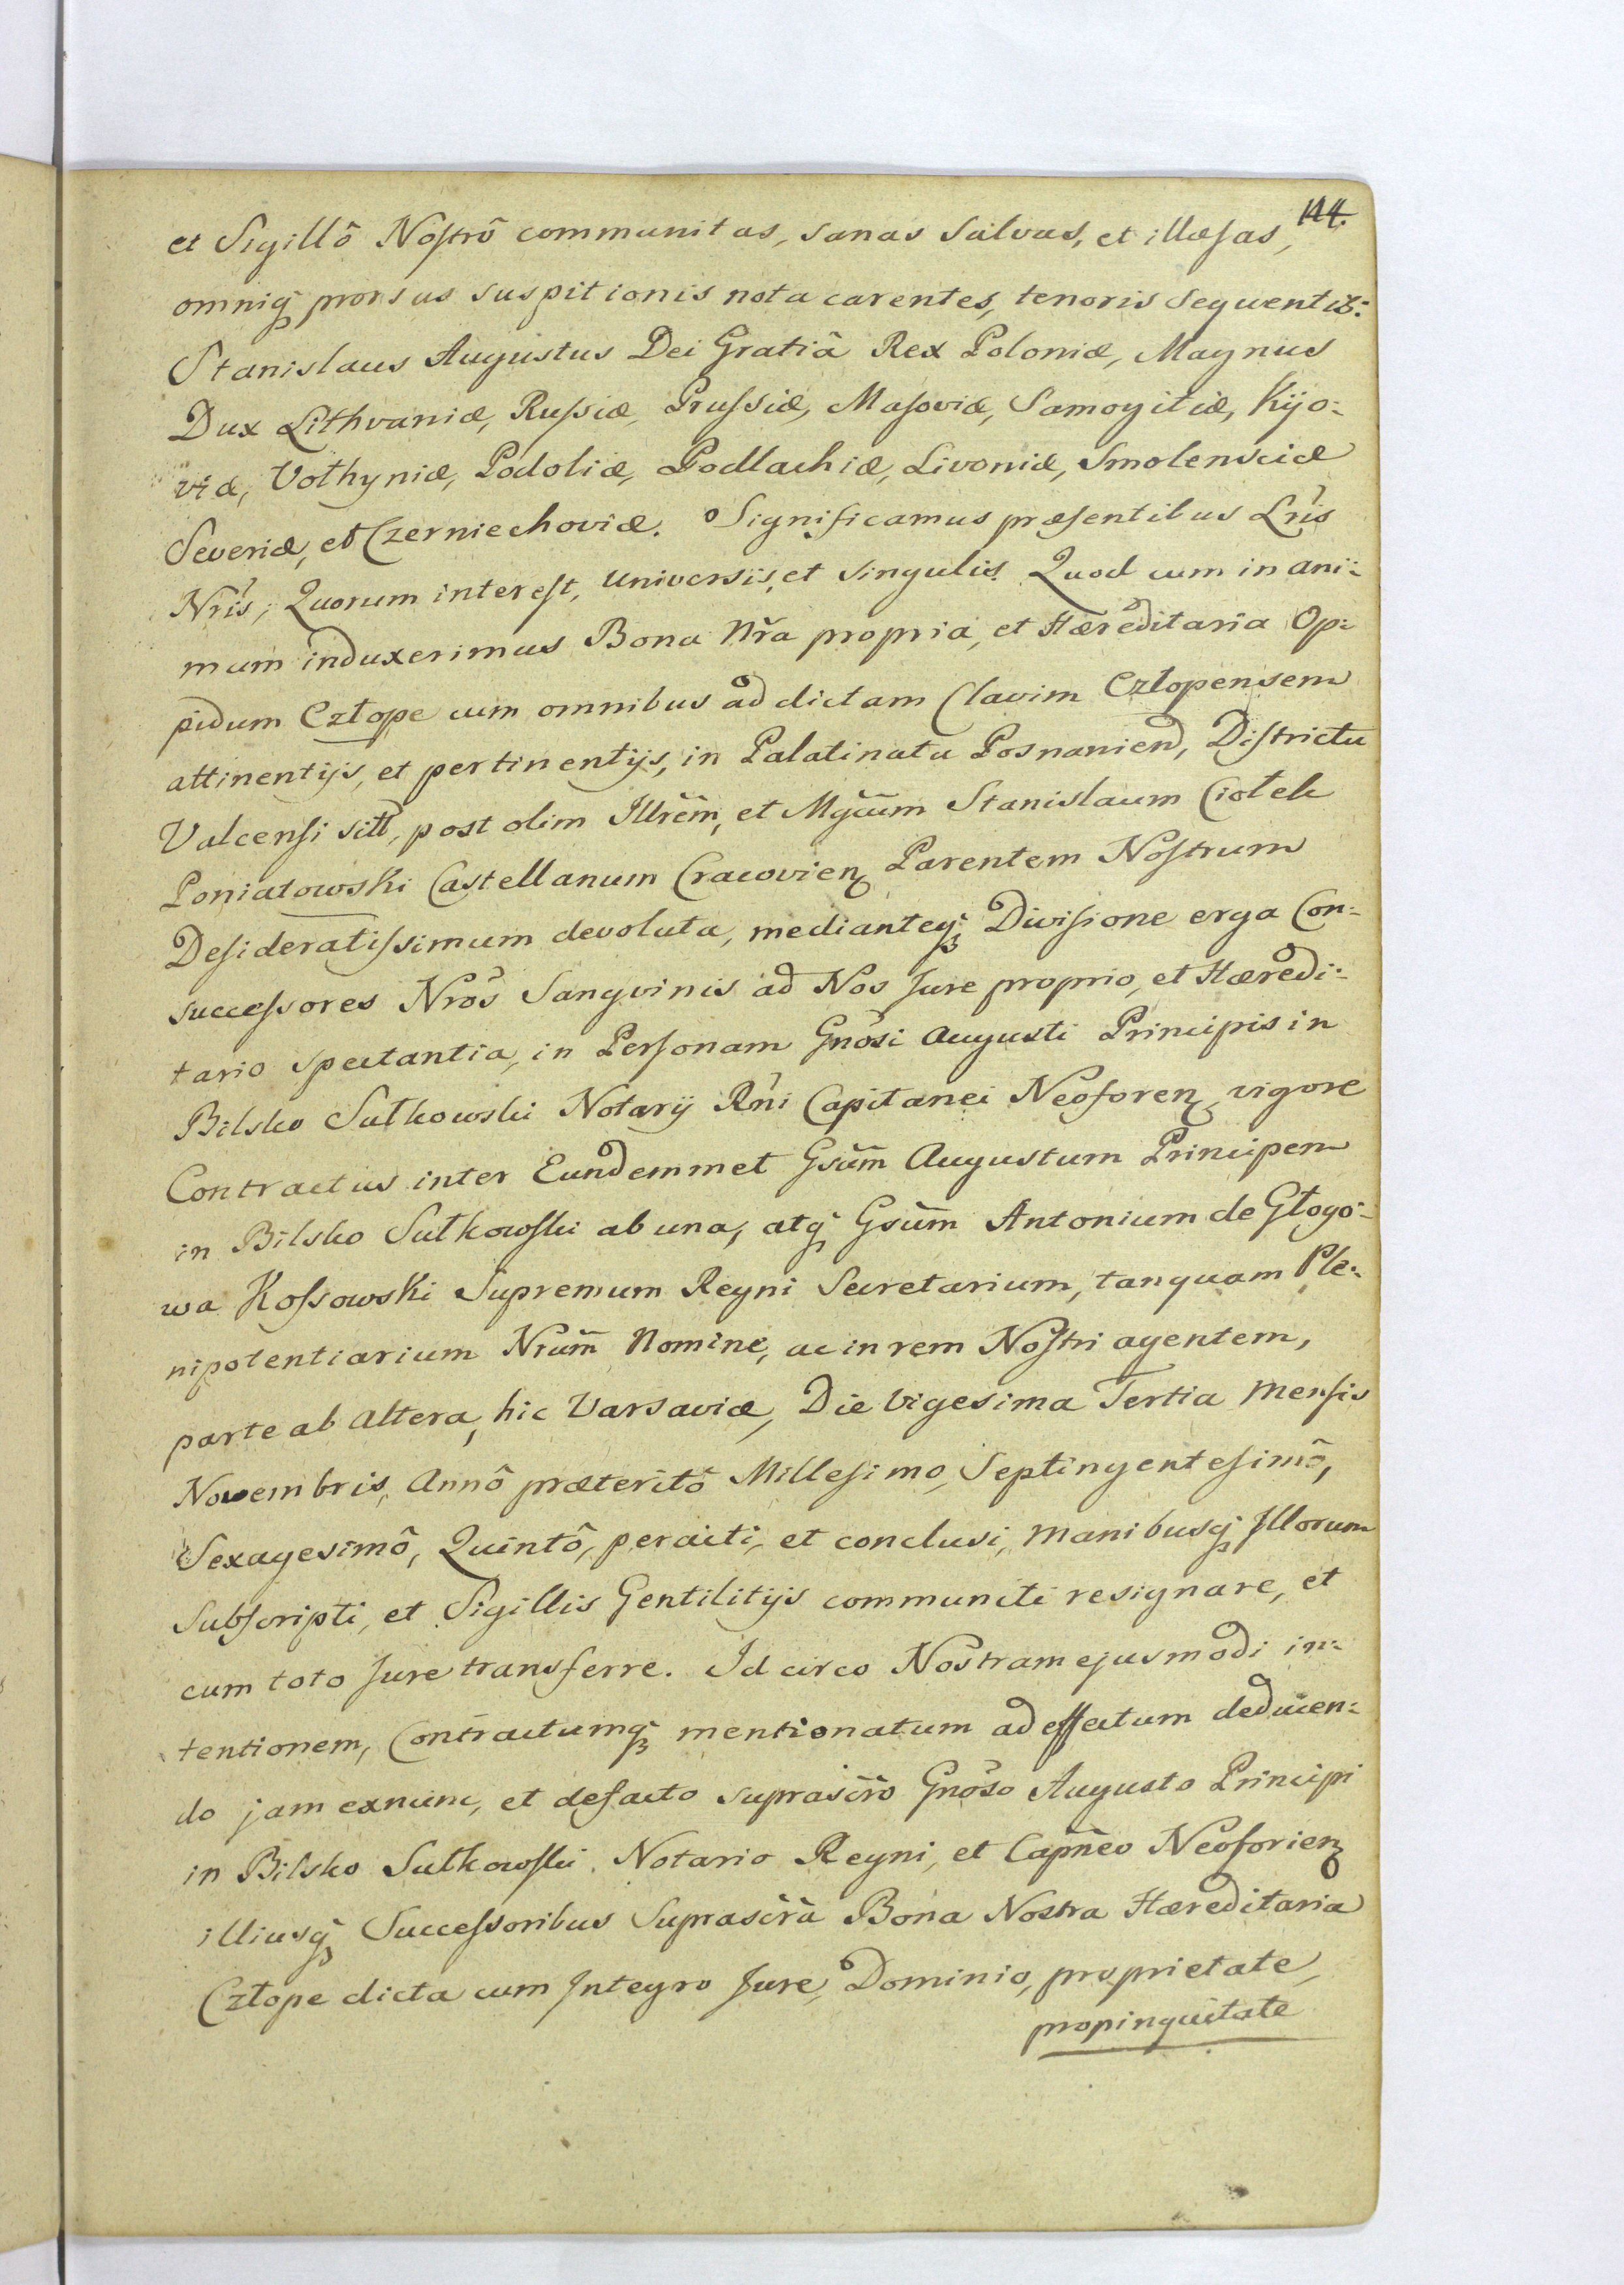 114.
et Sigillô Nostrô communitas, sanas salvas, et illæsas,
omniq̃ prorsus suspitionis nota carentes, tenoris sequentis:
Stanislaus Augustus Dei Gratiâ Rex Poloniæ, Magnus
Dux Lithvaniæ, Russiæ, Prussiæ, Masoviæ, Samogitiæ, Kijo:
viæ, Volhyniæ, Podoliæ, Podlachiæ, Livoniæ, Smolensciæ
Severiæ, et Czerniechoviæ. Significamus præsentibus Lr̃is
Nr̃is, Quorum interest, universis, et singulis. Quod cum in ani:
mum induxerimus Bona Nr̃a propria, et Hæreditaria Op:
pidum Człope cum omnibus ad dictam Clavim Człopensem
attinentijs, et pertinentijs, in Palatinatu Posnanien, Districtu
Valcensi sitt, post olim Illr̃em, et Mgc̃um Stanislaum Ciołek
Poniatowski Castellanum Cracovien Parentem Nostrum
Desideratissimum devoluta, medianteq̃ Divisione erga Con:
successores Nr̃os Sangvinis ad Nos Jure proprio, et Hæredi:
tario spectantia, in Personam Gnõsi Augusti Principis in
Bilsko Sułkowski Notarij Rñi Capitanei Neoforen vigore
Contractus inter Eundemmet Gsũm Augustum Principem
in Bilsko Sułkowski ab una, atq̃ Gsũm Antonium de Głogo:
wa Kossowski Supremum Regni Secretarium, tanquam Ple:
nipotentiarium Nrũm Nomine, ac in rem Nostri agentem,
parte ab altera, hic Varsaviæ, Die Vigesima Tertia Mensis
Novembris, Annô præteritô Millesimo, Septingentesimô,
Sexagesimô, Quintô, peracti, et conclusi, manibusq̃ Illorum
Subscripti, et Sigillis Gentilitijs communiti resignare, et
cum toto Jure transferre. Id circo Nostram ejusmodi in:
tentionem, Contractumq̃ mentionatum ad effectum deducen:
do jam exnunc, et defacto suprascr̃o Gnõso Augusto Principi
in Bilsko Sułkowski, Notario Regni, et Capñeo Neoforien
illiusq̃ Successoribus Suprascr̃a Bona Nostra Hæreditaria
Człope dicta cum Integro Jure, Dominio, proprietate,
propinquitate